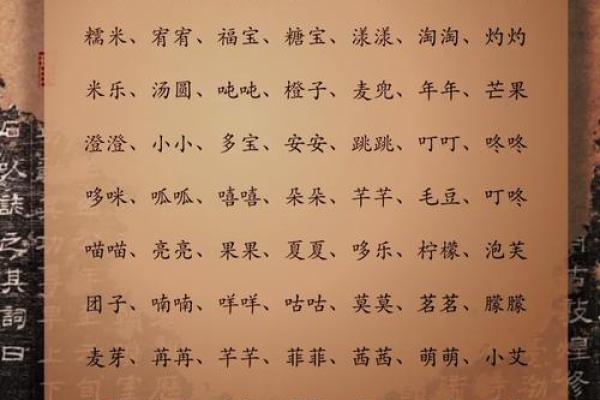 糯米、宥宥、福宝、糖宝、漾漾、淘淘、灼灼
米乐、汤圆、吨吨、橙子、麦兜、年年、芒果
澄澄、小小、多宝、安安、跳跳、叮叮、咚咚
哆咪、呱呱、嘻嘻、朵朵、芊芊、毛豆、叮咚
喵喵、亮亮、果果、夏夏、哆乐、柠檬、泡芙
团子、喃喃、咩咩、咕咕、莫莫、茗茗、朦朦
麦芽、苒苒、芊芊、菲菲、茜茜、萌萌、小艾